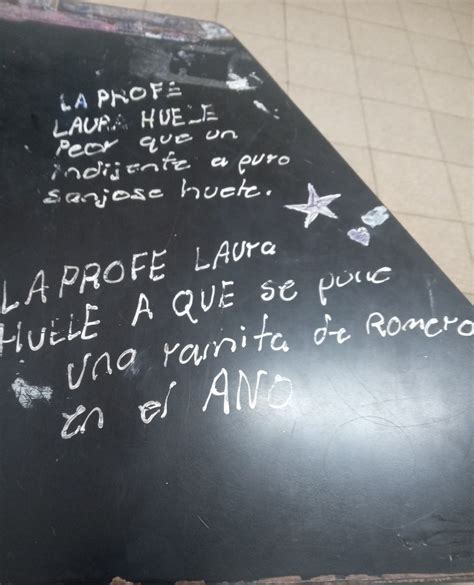 LA PROFE
LAURA HUELE
Peor que un
indijente a puro
sanjose huele.
LA PROFE LAUra
HUELE A QUE se pone
una ramita de Romero
en el ANO